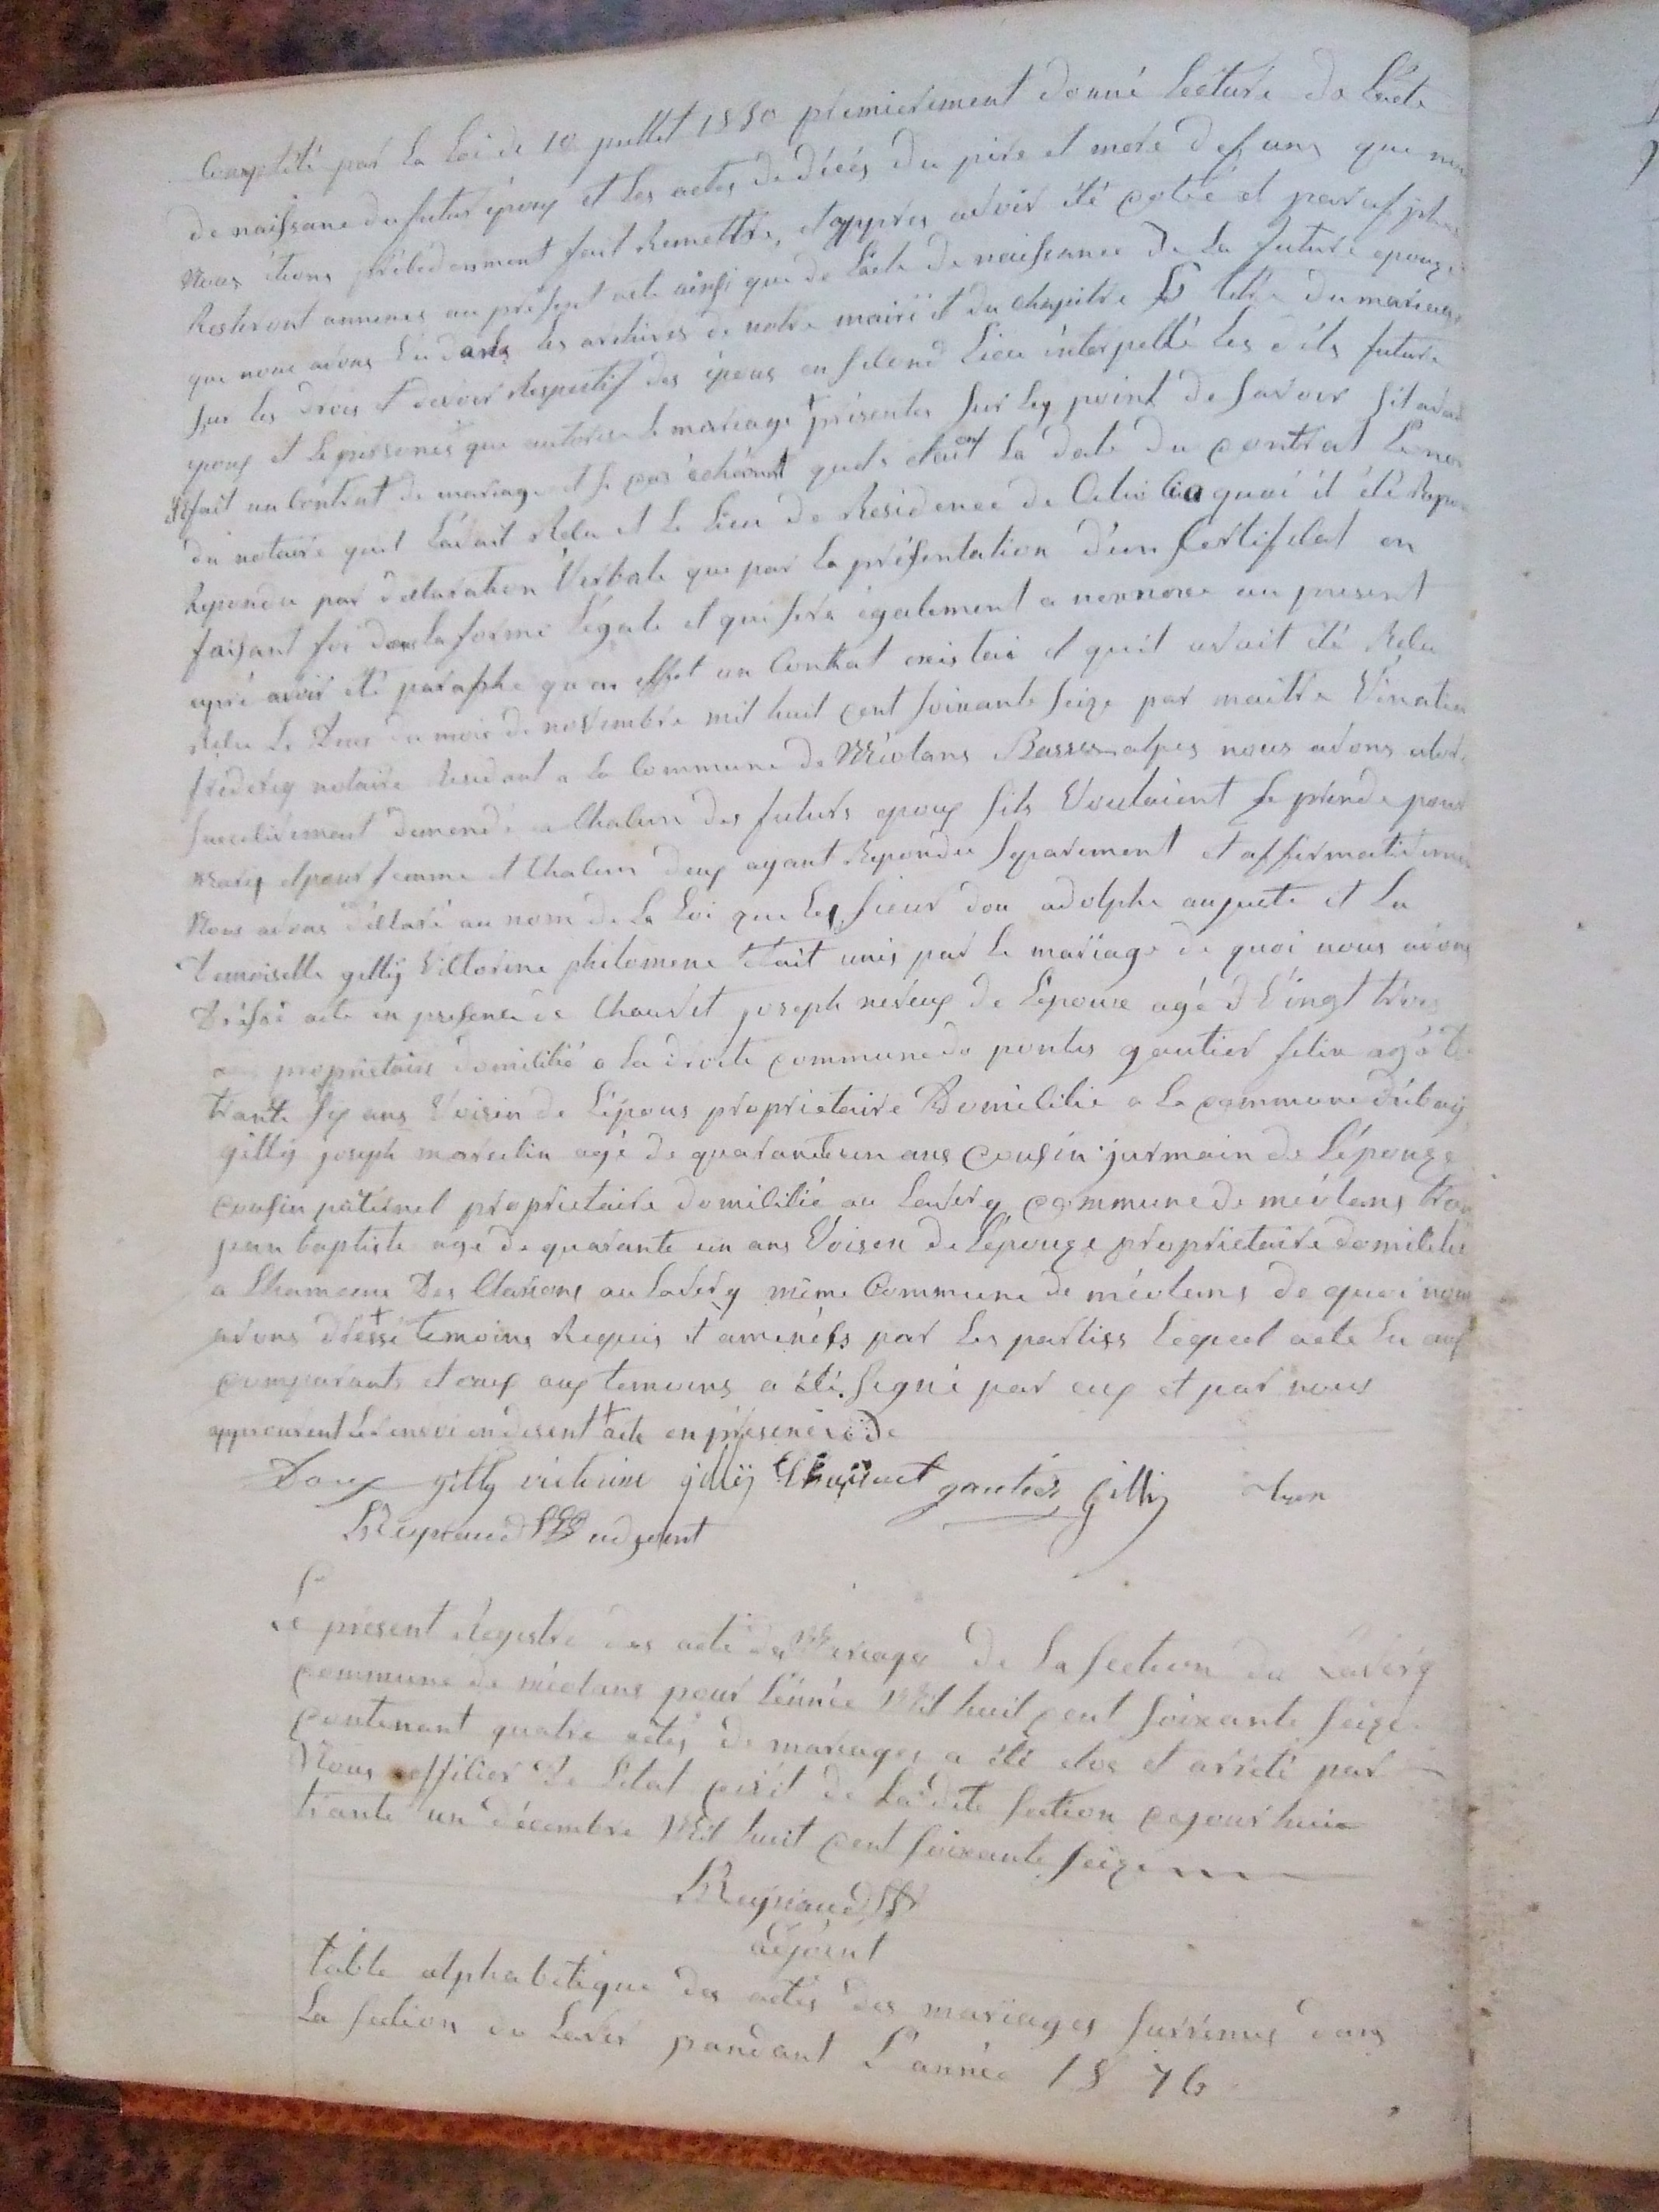 Complété par la Loi de 10 juillet 1850 premierement donné lecture de l'acte
de naissane du futur époux et les actes de décés du pere et mere defuns que nous
nous étions précédemment fait Remettre, et appres avoir été cotée et paraf
Resteront annexes au présent acte ainsi que de l'acte de naissance de la future epouze
que nous avons Lu dans les archives de notre mairi et du chapitre titre du mariage
sur les drois et devoir Respectif des époux en second Lieu interpellé les dits futurs
epoux et les personnes que autorise le mariage présentes sur les point de savoir sil avai
fait un Contrat de mariage et le cas échéant quels etait la date du contrat le nom
du notaire quil l'avait Relu et le lieu de Residence de Celui Ci a quoi il été Repon
Repondu par declaration Verbale que par la présentation d'un Certificlat en
faisant foi dans la forme légale et qui sera également a nonnoxe au present
apré avoir été paraphe qu'en effet un Contrat existai et quil avait été Relu
Relu le Deux du mois de novembre mil huit cent soixante seize par maitre
frederiq notaire Residant a la Commune de Méolans Basses alpes nous avons alors
succésivement demendé a Chalun des futurs epoux sils Voulaient se prendre pour
mary et pour femme et Chalun deux ayant Repondu séparement et affirmativemen
nous avons déclaré au nom de la Loi que les sieur dou adolphe auguste et La
demoiselle gilly Victorine philomene était unis par le mariage de quoi nous avons
Dréssé acte en presence de Chauvet joseph neveux de l'épouze agé d Vingt trois
propriétaire domililié a la droite commune de pontis gautier felix agé de
trante six ans Voisin de l'épous propriétaire Domililié a la commune d'ubaÿ
gilly joseph marcelin agé de quarante un ans cousin jurmain de L'épouze
cousin paternel propriétaire domililié au Laverq commune de méolans tron
jean baptiste agé de quarante un ans Voisen de l'épouze propriétaire domililié
a l'hameau Des Clarions au laverq même Commune de méolans de quoi nous
avons dressé + temoins Requis et aménés par les partiss lequel acte lu aux
comparants et aux temoins a été signé par eux et par nous
+ acte en présence de
Doux gilly victorine gillÿ Chauvet gautier Gilly tron
Reynaud adjoint
Le présent Régistre des acte de Mariage de la section du Laverq
commune de méolans pour l'année Mil huit cent soixante seize
contenant quatre actes de mariages a été clos et arrété par
Nous officier De l'état civil de la dite section cejourhuie
trante un décembre Mil huit cent soixante seize
Reynaud
adjoint
table alphabétique des actes des mariages survenus dans
La section du Laver pandant L'année 1876